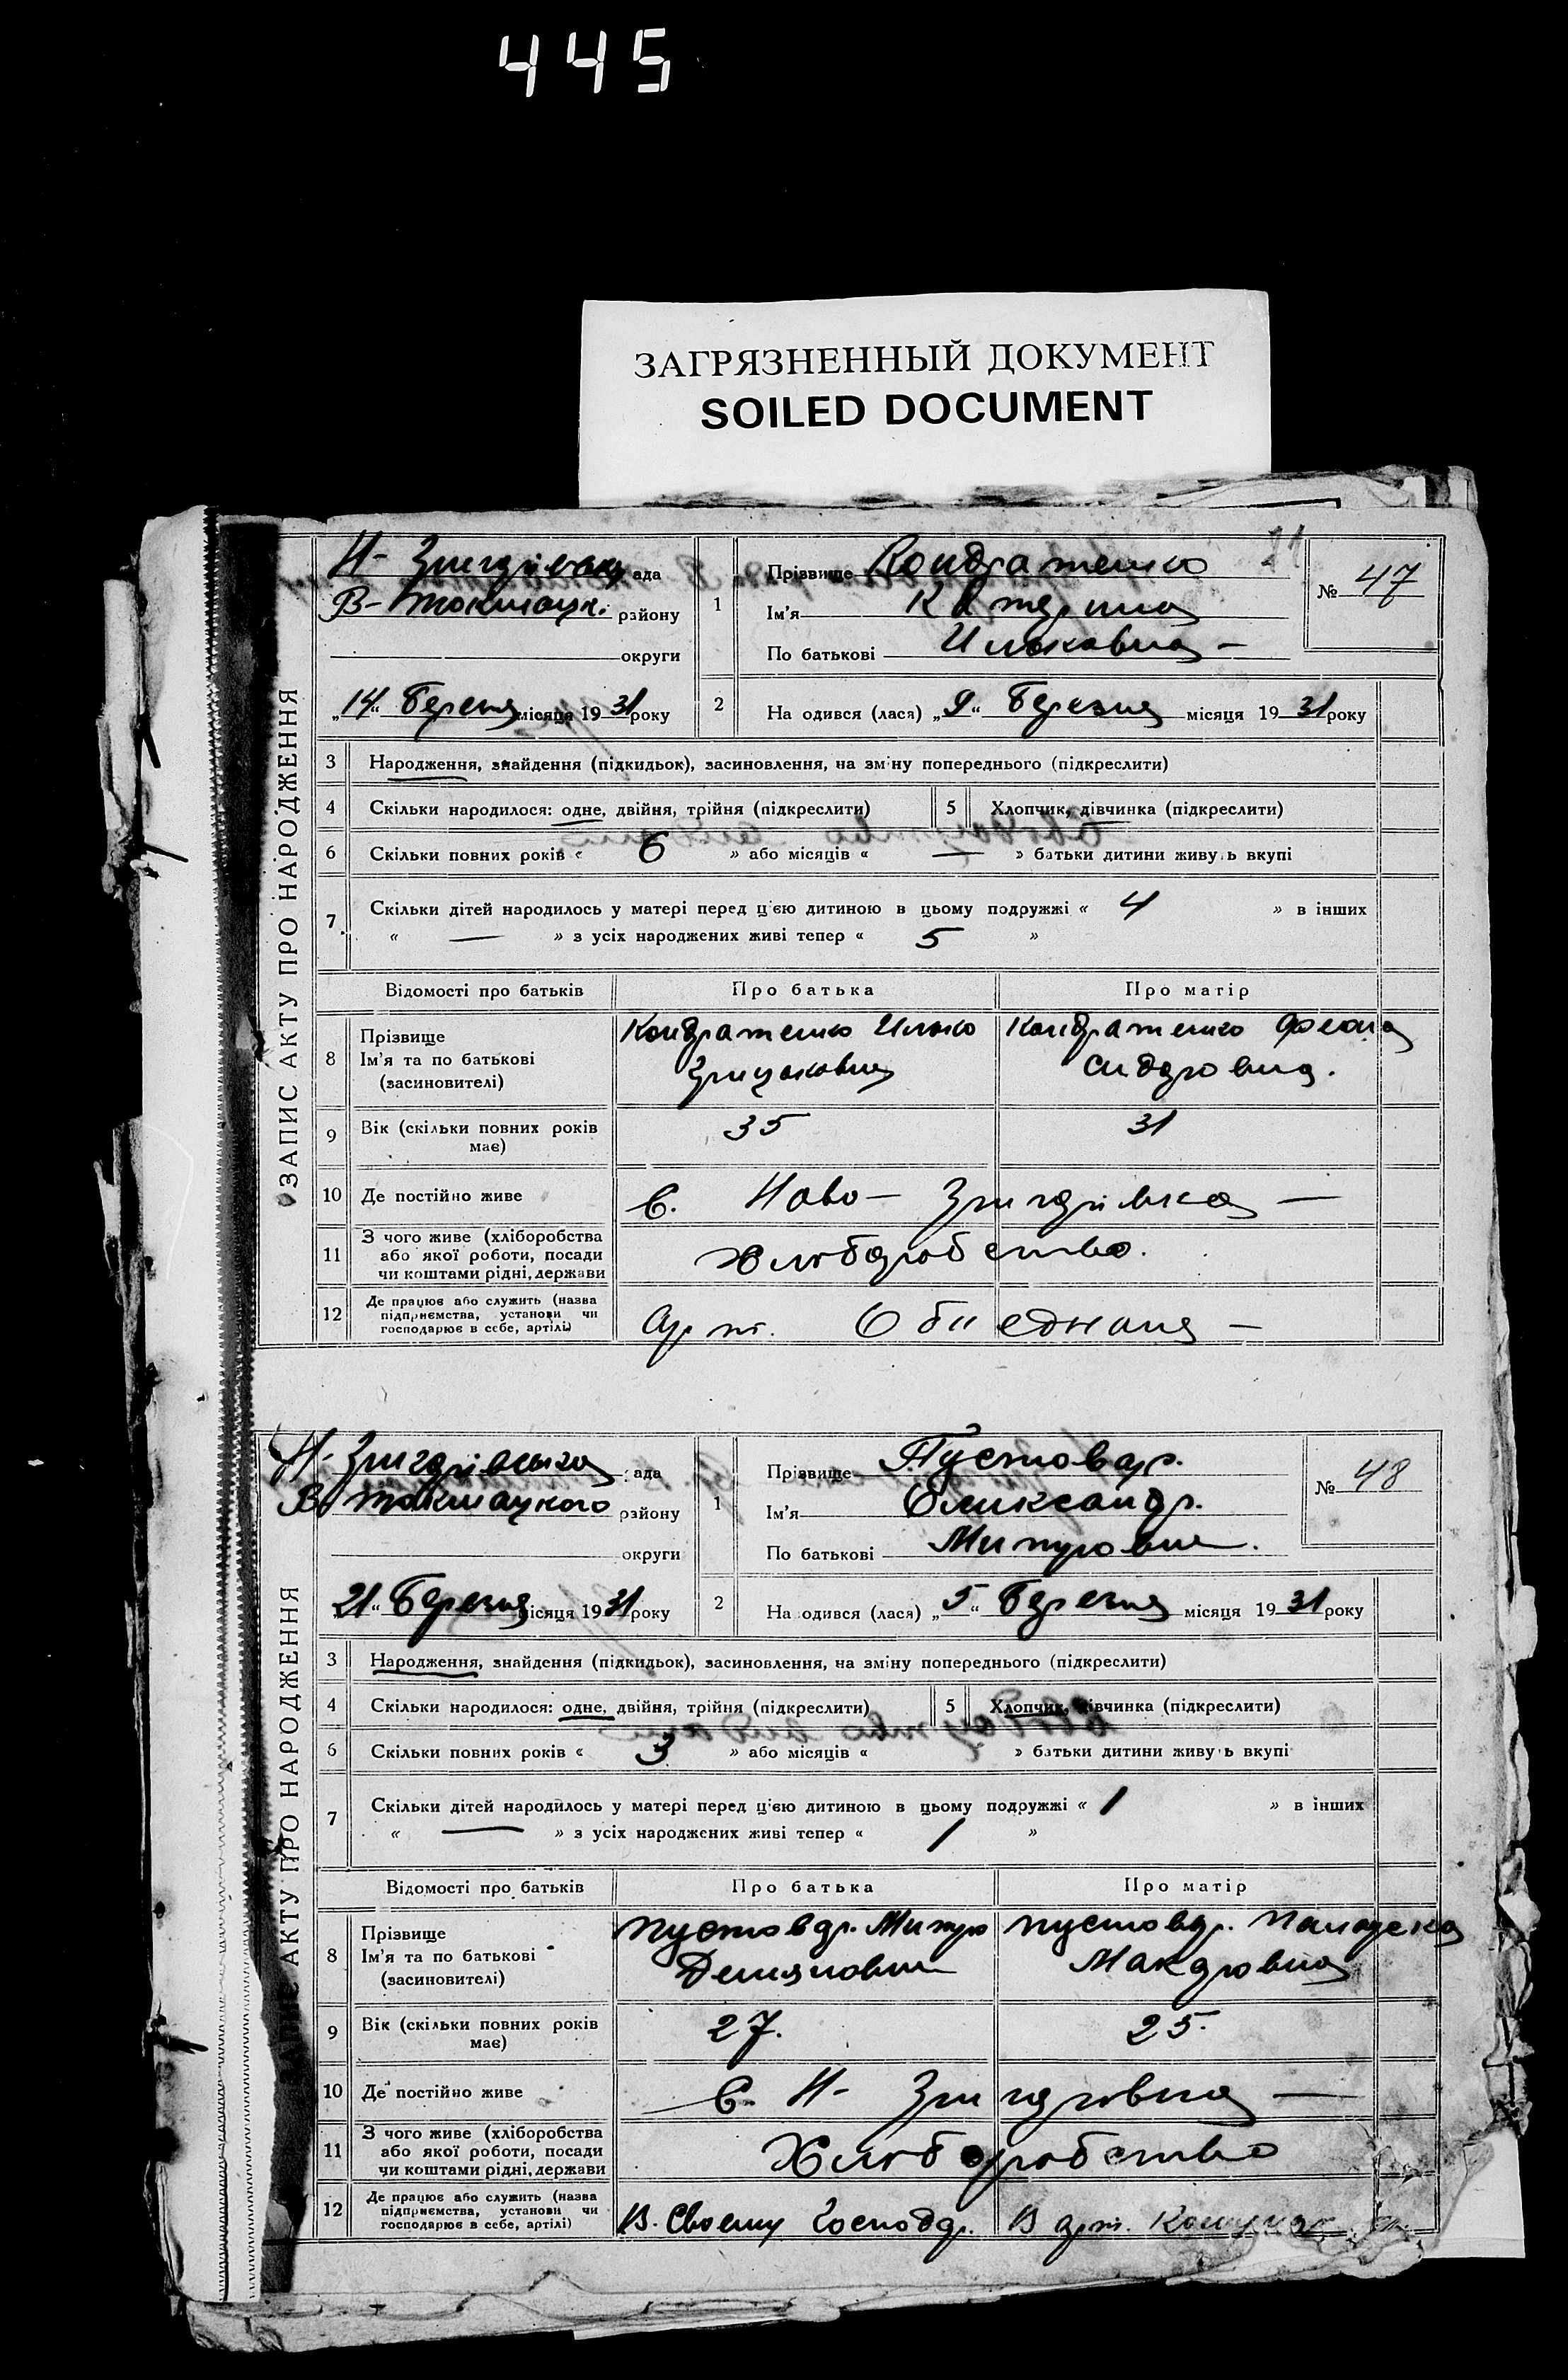 445
ЗАГРЯЗНЕННЫЙ ДОКУМЕНТ
SOILED DOCUMENT
ЗАПИС АКТУ ПРО НАРОДЖЕННЯ
Н- ада
В-Токмацьк. району
округи
„14“ місяця 1931 року
1
Прізвище Кондратенко
Ім'я Катерина
По батькові Ильковна –
№ 47
2
На одився (лася) „9“ Березня місяця 1931 року
3 Народження, знайдення (підкидьок), засиновлення, на зміну попереднього (підкреслити)
4 Скільки народилося: одне, двійня, трійня (підкреслити) 5 Хлопчик, дівчинка (підкреслити)
6 Скільки повних років « 6 » або місяців « — » батьки дитини живу ь вкупі
7 Скільки дітей народилось у матері перед цією дитиною в цьому подружжі « 4 » в інших
« — » з усіх народжених живі тепер « 5 »
Відомості про батьків Про батька Про матір
8 Прізвище Ім'я та по батькові (засновителі) Кондратенко Илько Кондратенко
Сидоровна.
9 Вік (скільки повних років має) 35 31
10 Де постійно живе с. Ново –
11 З чого живе (хліборобства або якої роботи, посади чи коштами рідні, держави Хліборобство.
12 Де працює або служить (назва підприємства, установи чи господарює в себе, артілі) Арт. –
ЗАПИС АКТУ ПРО НАРОДЖЕННЯ
Н- ада
В. Токмацкого району
округи
„21“ Березня місяця 1931 року
1
Прізвище Пустовар.
Ім'я Олександр.
По батькові
№ 48
2
На одився (лася) „5“ Березня місяця 1931 року
3 Народження, знайдення (підкидьок), засиновлення, на зміну попереднього (підкреслити)
4 Скільки народилося: одне, двійня, трійня (підкреслити) 5 Хлопчик, дівчинка (підкреслити)
6 Скільки повних років « 3 » або місяців « » батьки дитини живу ь вкупі
7 Скільки дітей народилось у матері перед цією дитиною в цьому подружжі « 1 » в інших
« — » з усіх народжених живі тепер « 1 »
Відомості про батьків Про батька Про матір
8 Прізвище Ім'я та по батькові (засиновителі) Пустовар. Пустовар.
Макаровна
9 Вік (скільки повних років має) 27. 25.
10 Де постійно живе с. Н- —
11 З чого живе (хліборобства або якої роботи, посади чи коштами рідні, держави Хліборобство
12 Де працює або служить (назва підприємства, установи чи господарює в себе, артілі) В. Своему Господар. В арт.